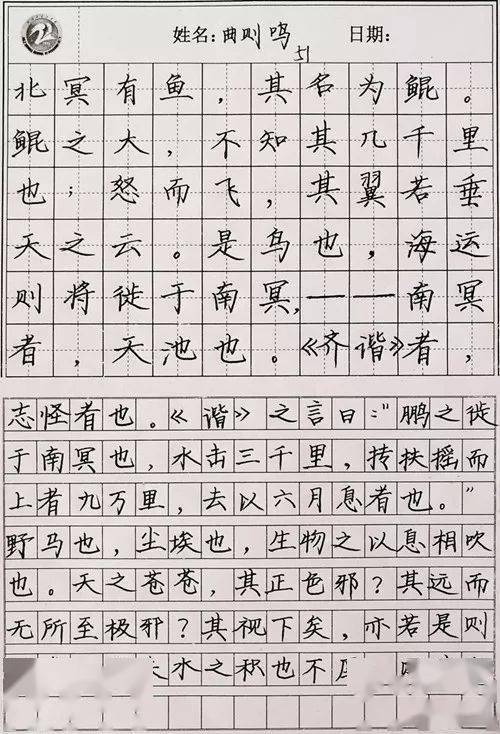 姓名:曲则鸣 51 日期:
北冥有鱼，其名为鲲。
鲲之大，不知其几千里
也；怒而飞，其翼若垂
天之云。是鸟也，海运
则将徙于南冥，——南冥
者，天池也。《齐谐》者，
志怪者也。《谐》之言曰："鹏之徙
于南冥也，水击三千里，抟扶摇而
上者九万里，去以六月息者也。"
野马也，尘埃也，生物之以息相吹
也。天之苍苍，其正色邪？其远而
无所至极邪？其视下矣，亦若是则
水之积也不